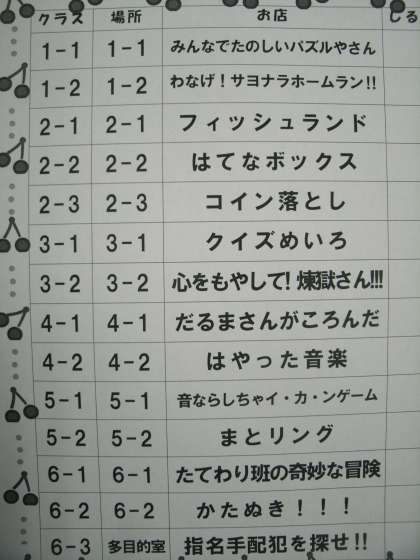 クラス 場所 お店 しる
1-1 1-1 みんなでたのしいパズルやさん
1-2 1-2 わなげ！サヨナラホームラン!!
2-1 2-1 フィッシュランド
2-2 2-2 はてなボックス
2-3 2-3 コイン落とし
3-1 3-1 クイズめいろ
3-2 3-2 心をもやして!煉獄さん!!!
4-1 4-1 だるまさんがころんだ
4-2 4-2 はやった音楽
5-1 5-1 音ならしちゃイ・カ・ンゲーム
5-2 5-2 まとリング
6-1 6-1 たてわり班の奇妙な冒険
6-2 6-2 かたぬき！！！
6-3 多目的室 指名手配犯を探せ!!